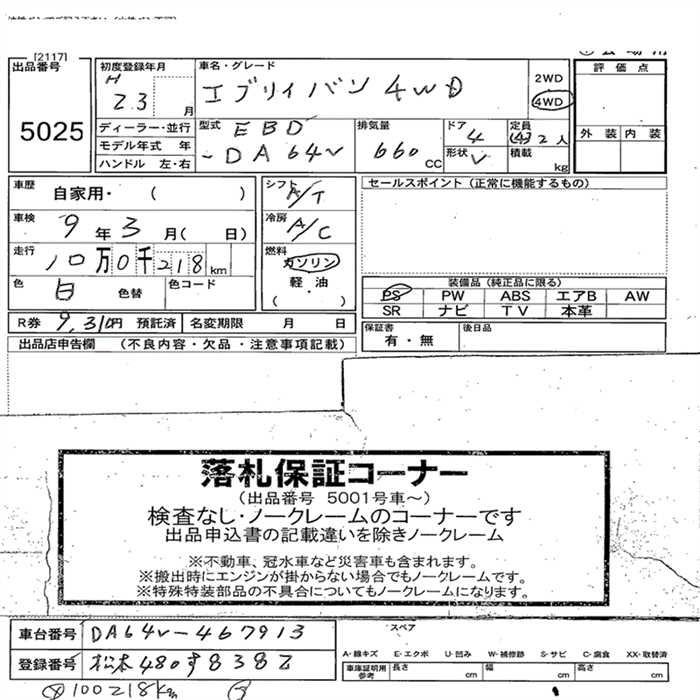 [2117]
出品番号
5025
初度登録年月
H
23 月
車名・グレード
エブリィバン 4WD
2WD
4WD
評価点
外装 内装
ディーラー・並行
モデル年式 年
ハンドル 左・右
型式
EBD
-DA64V
排気量
660 CC
ドア
4
形状 V
定員
(4) 2 人
積載
kg
車歴
自家用・ ( )
車検
9 年 3 月( 日)
走行
10万0千218km
色
白 色替
色コード
シフト
A/T
冷房
A/C
燃料
ガソリン
軽・油
( )
セールスポイント (正常に機能するもの)
装備品 (純正品に限る)
PS PW ABS エアB AW
SR ナビ TV 本革
R券 9,310円 預託済 名変期限 月 日
保証書
有・無
後日品
出品店申告欄 (不良内容・欠品・注意事項記載)
落札保証コーナー
(出品番号 5001号車～)
検査なし・ノークレームのコーナーです
出品申込書の記載違いを除きノークレーム
※不動車、冠水車など災害車も含まれます。
※搬出時にエンジンが掛からない場合でもノークレームです。
※特殊特装部品の不具合についてもノークレームになります。
車台番号 DA64V-467913
スペア
登録番号 松本480す8382
A・線キズ E・エクボ U・凹み W・補修跡 S・サビ C・腐食 XX・取替済
車庫証明用
参考
長さ cm 幅 cm 高さ cm
100218km